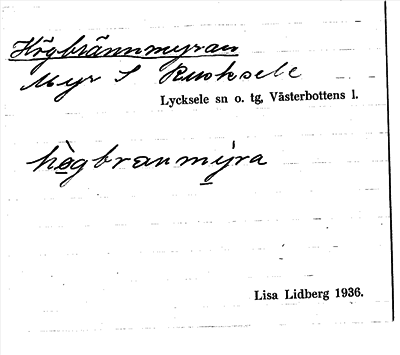 Högbrännmyran
Myr S Ruoksele
Lycksele sn o. tg, Västerbottens l.
hògbranmýra
Lisa Lidberg 1936.